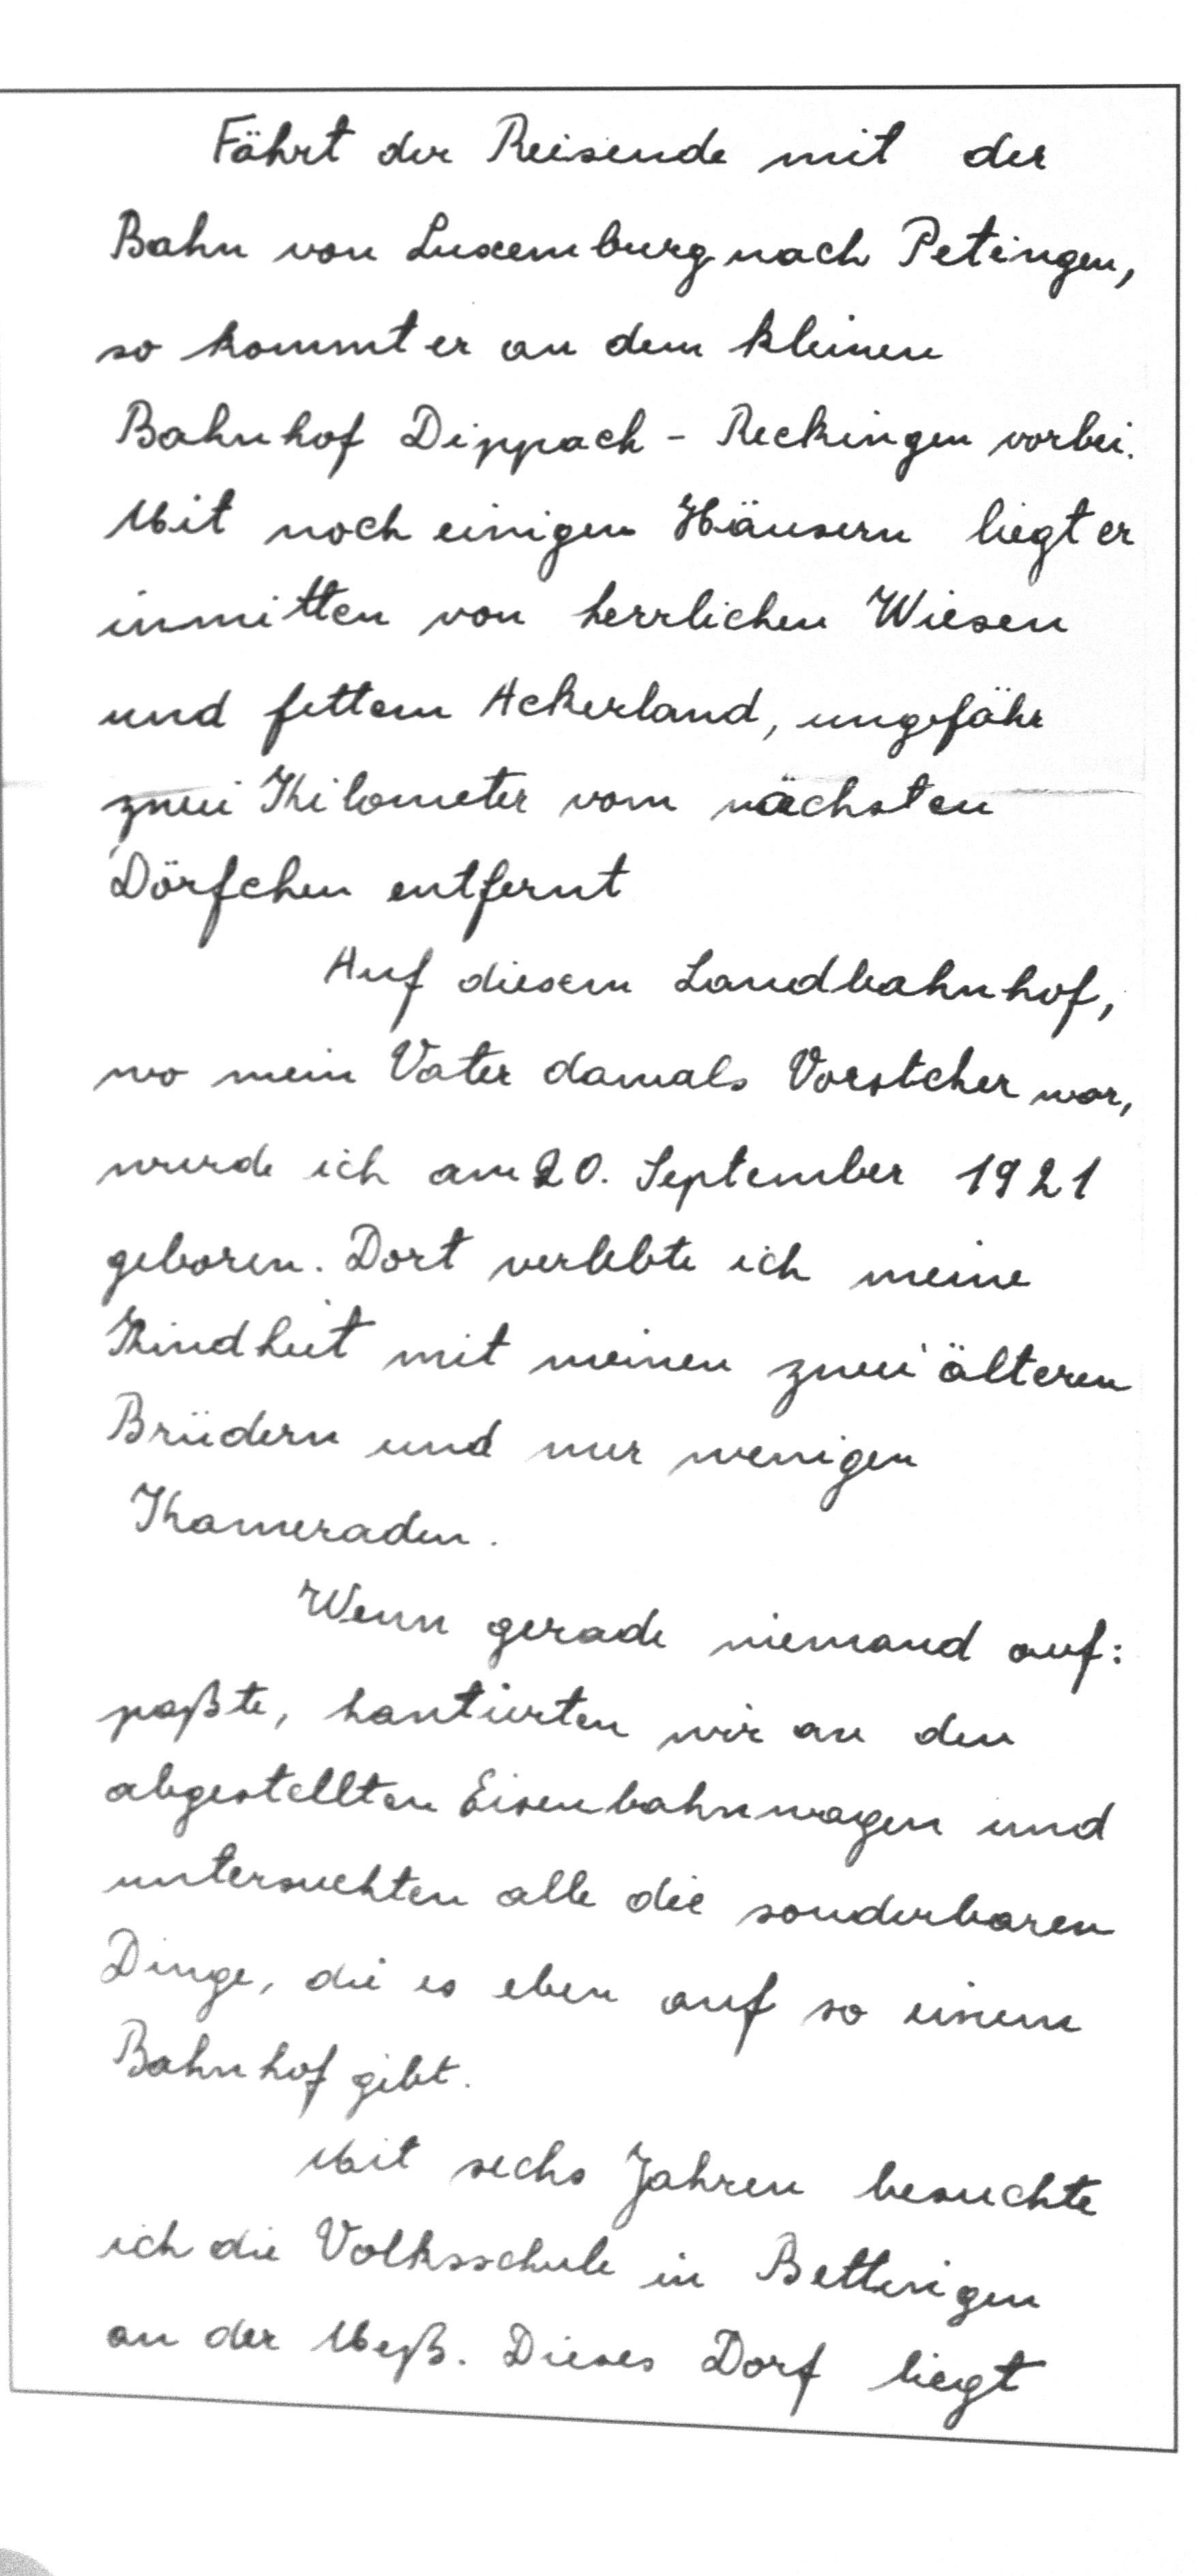 Fährt der Reisende mit der
Bahn von Luxemburg nach Petingen,
so kommt er an dem kleinen
Bahnhof Dippach - Reckingen vorbei.
Mit noch einigen Häusern liegt er
inmitten von herrlichen Wiesen
und fettem Ackerland, ungefähr
zwei Kilometer vom nächsten
Dörfchen entfernt
Auf diesem Landbahnhof,
wo mein Vater damals Vorsteher war,
wurde ich am 20. September 1921
geboren. Dort verlebte ich meine
Kindheit mit meinen zwei älteren
Brüdern und nur wenigen
Kameraden.
Wenn gerade niemand auf:
paßte, hantierten wir an den
abgestellten Eisenbahnwagen und
untersuchten alle die sonderbaren
Dinge, die es eben auf so einem
Bahnhof gibt.
Mit sechs Jahren besuchte
ich die Volksschule in Bettingen
an der Meß. Dieses Dorf liegt